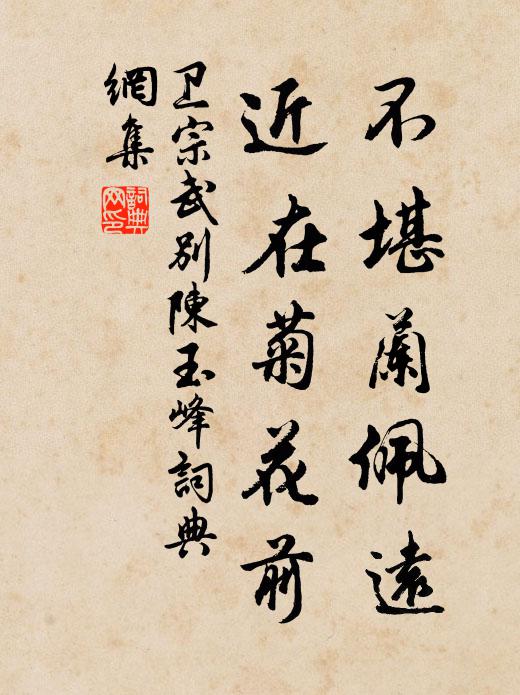 不堪蘭佩遠
近在菊花前
卫宗武別陳玉峰詞典
網集
詞典網印